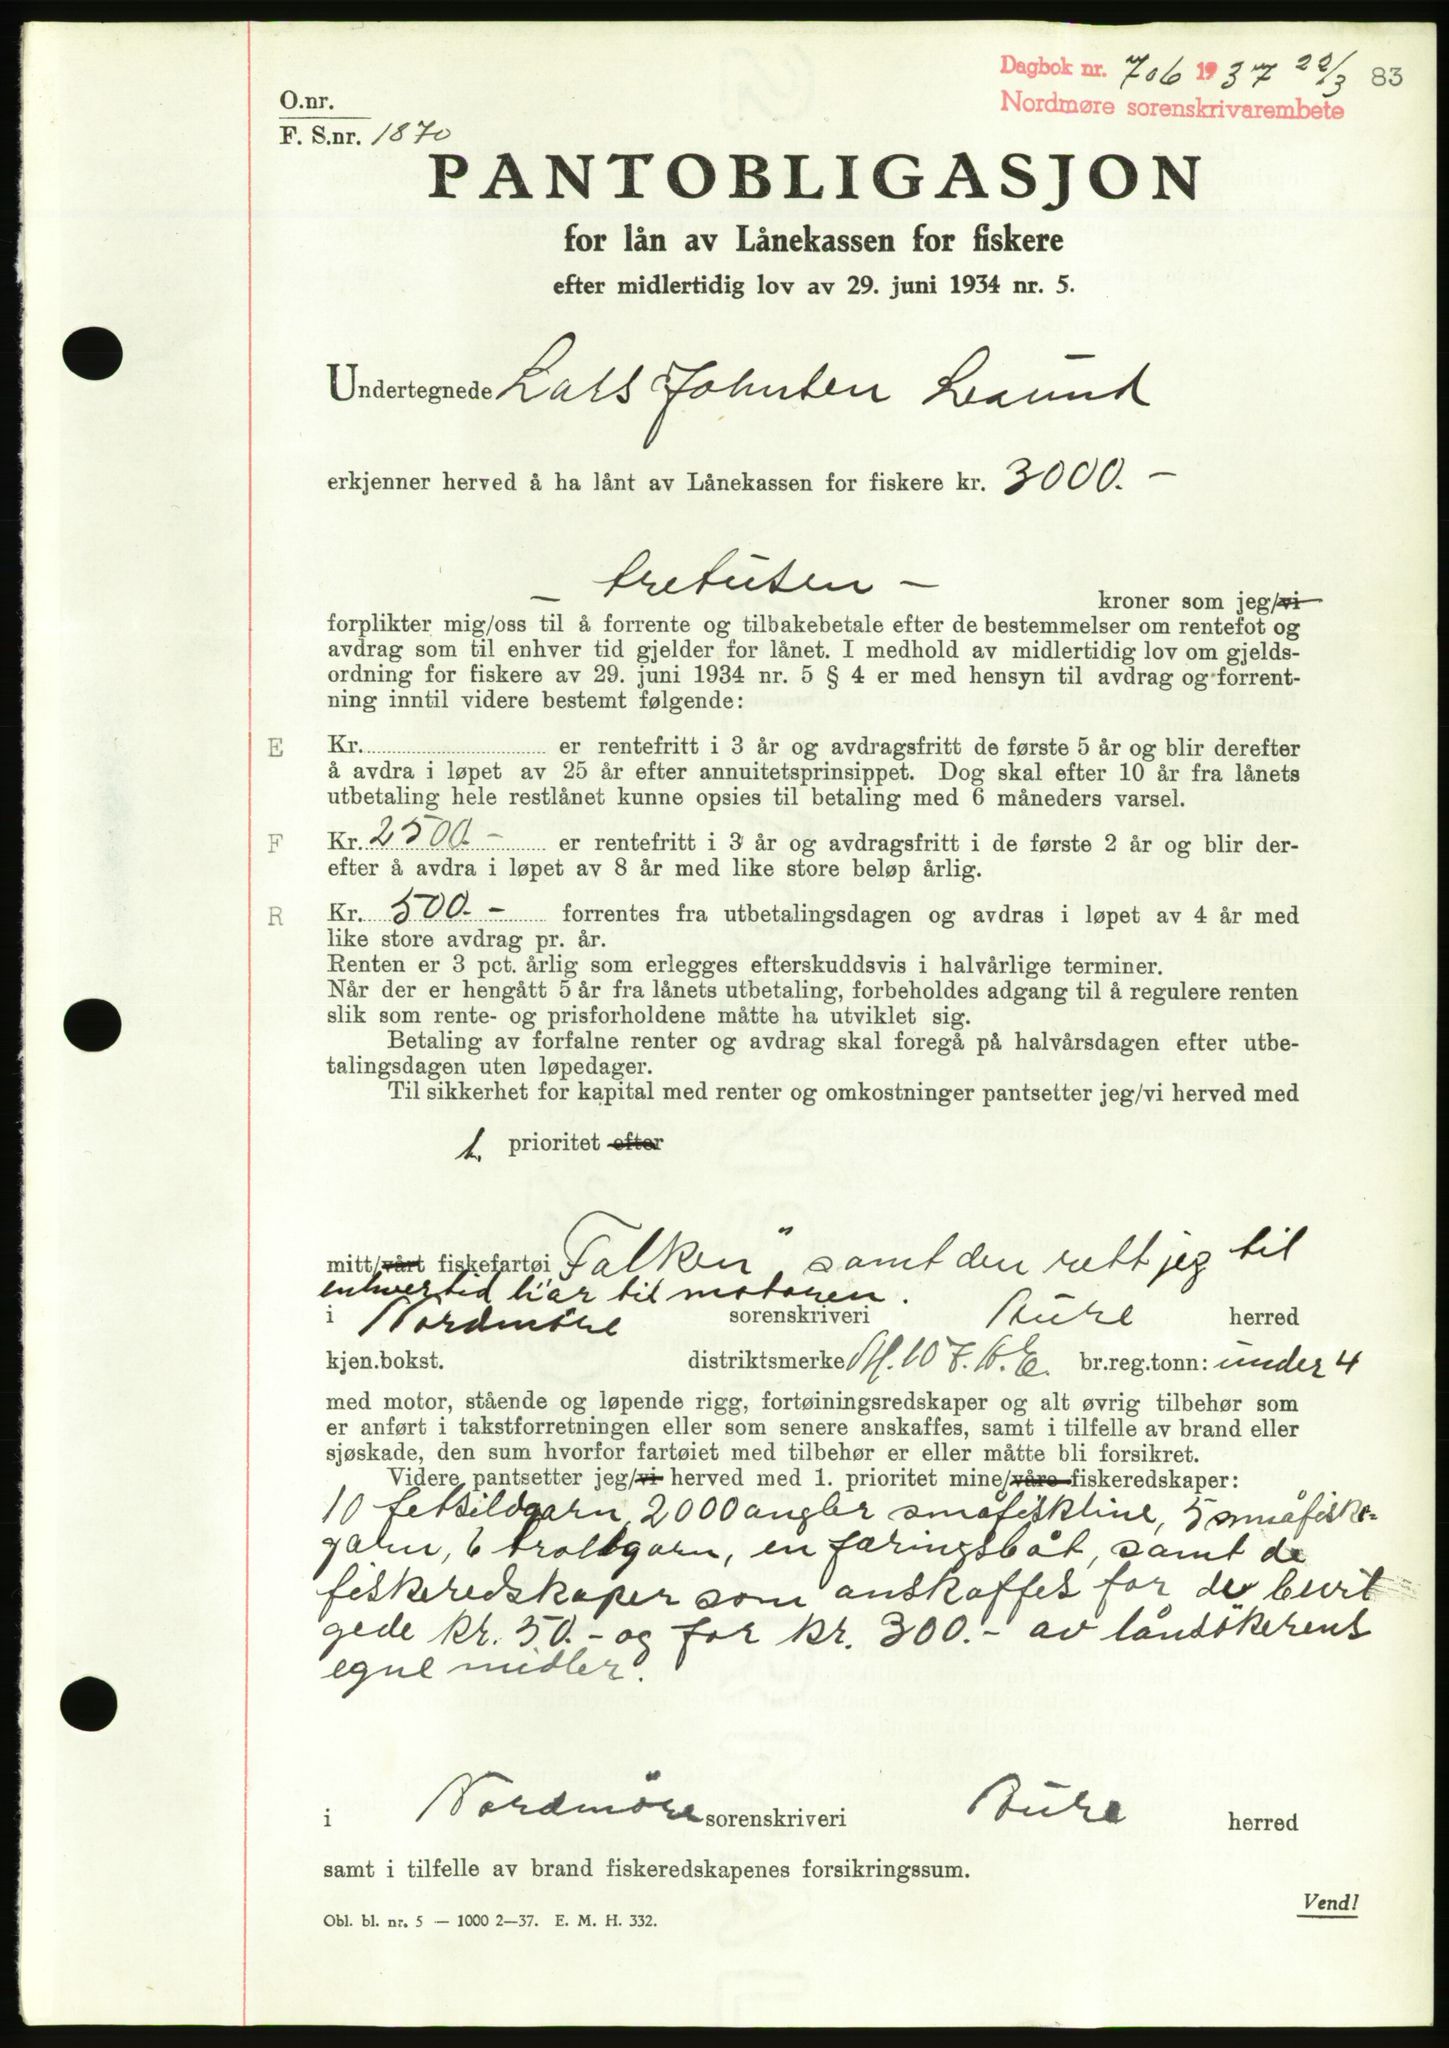 Dagbok nr. 706 1937 22/3 83
Nordmøre sorenskrivarembete
O.nr.
F. S.nr. 1870
PANTOBLIGASJON
for lån av Lånekassen for fiskere
efter midlertidig lov av 29. juni 1934 nr. 5.
Undertegnede Lars Johnsen Lesund
erkjenner herved å ha lånt av Lånekassen for fiskere kr. 3000.-
- tretusen -
kroner som jeg/vi
forplikter mig/oss til å forrente og tilbakebetale efter de bestemmelser om rentefot og
avdrag som til enhver tid gjelder for lånet. I medhold av midlertidig lov om gjelds-
ordning for fiskere av 29. juni 1934 nr. 5 § 4 er med hensyn til avdrag og forrent-
ning inntil videre bestemt følgende:
E Kr. er rentefritt i 3 år og avdragsfritt de første 5 år og blir derefter
å avdra i løpet av 25 år efter annuitetsprinsippet. Dog skal efter 10 år fra lånets
utbetaling hele restlånet kunne opsies til betaling med 6 måneders varsel.
F Kr. 2500.- er rentefritt i 3 år og avdragsfritt i de første 2 år og blir der-
efter å avdra i løpet av 8 år med like store beløp årlig.
R Kr. 500.- forrentes fra utbetalingsdagen og avdras i løpet av 4 år med
like store avdrag pr. år.
Renten er 3 pct. årlig som erlegges efterskuddsvis i halvårlige terminer.
Når der er hengått 5 år fra lånets utbetaling, forbeholdes adgang til å regulere renten
slik som rente- og prisforholdene måtte ha utviklet sig.
Betaling av forfalne renter og avdrag skal foregå på halvårsdagen efter utbe-
talingsdagen uten løpedager.
Til sikkerhet for kapital med renter og omkostninger pantsetter jeg/vi herved med
1. prioritet efter
mitt/vårt fiskefartøi "Falken" samt den rett jeg til
enhver tid har til motoren.
i Nordmöre sorenskriveri Aure herred
kjen.bokst. distriktsmerke M. 107. A. E. br.reg.tonn: under 4
med motor, stående og løpende rigg, fortøiningsredskaper og alt øvrig tilbehør som
er anført i takstforretningen eller som senere anskaffes, samt i tilfelle av brand eller
sjøskade, den sum hvorfor fartøiet med tilbehør er eller måtte bli forsikret.
Videre pantsetter jeg/vi herved med 1. prioritet mine/våre fiskeredskaper:
10 fetsildgarn, 2000 angler småfiskline, 5 småfiske-
garn, 6 trollgarn, en færingsbåt, samt de
fiskeredskaper som anskaffes for de bevil
gede kr. 50.- og for kr. 300.- av lånsökerens
egne midler.
i Nordmöre sorenskriveri Aure herred
samt i tilfelle av brand fiskeredskapenes forsikringssum.
Vend!
Obl. bl. nr. 5 — 1000 2—37. E. M. H. 332.